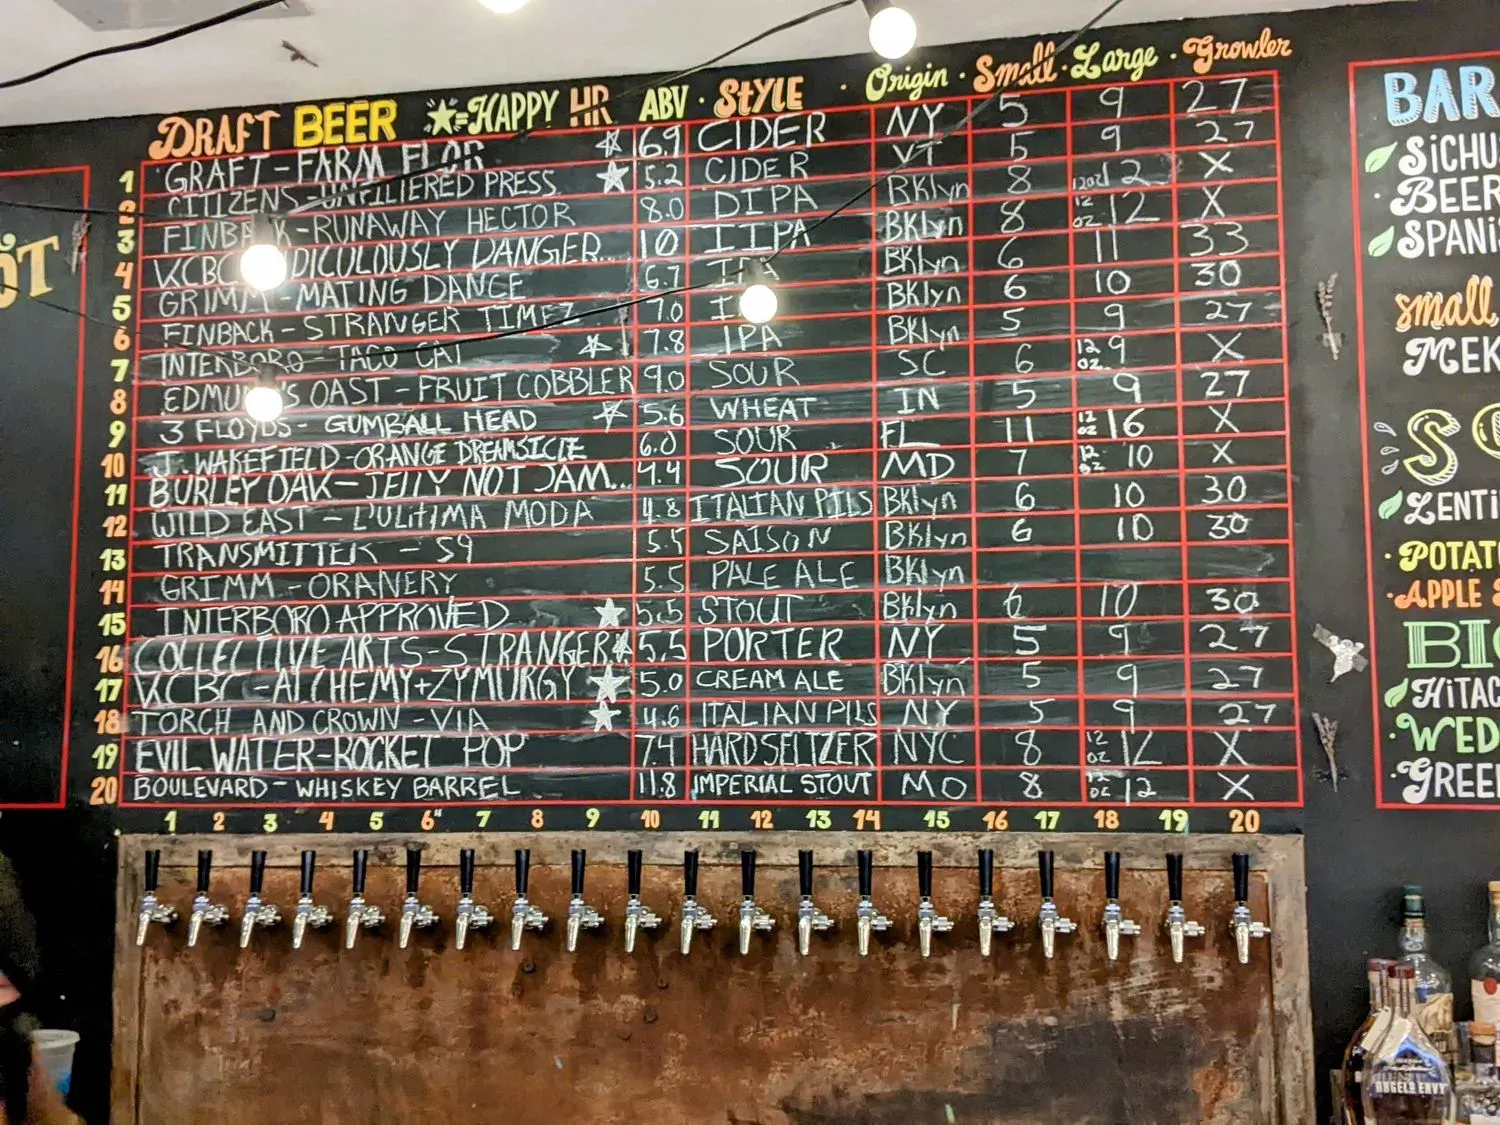 DRAFT BEER ★=HAPPY HR ABV · STYLE · Origin · Small · Large · Growler
1 GRAFT-FARM FLOR ☆ 6.9 CIDER NY 5 9 27
2 CITIZENS-UNFILTERED PRESS ★ 5.2 CIDER VT 5 9 27
3 FINBACK-RUNAWAY HECTOR 8.0 DIPA BKlyn 8 12oz 12 X
4 KCBC RIDICULOUSLY DANGER... 10 IIPA BKlyn 8 12 oz 12 X
5 GRIMM-MATING DANCE 6.7 IPA BKlyn 6 11 33
6 FINBACK-STRANGER TIMEZ 7.0 IPA BKlyn 6 10 30
7 INTERBORO-TACO CAT ☆ 7.8 IPA BKlyn 5 9 27
8 EDMUND'S OAST-FRUIT COBBLER 9.0 SOUR SC 6 12 oz. 9 X
9 3 FLOYDS-GUMBALL HEAD ☆ 5.6 WHEAT IN 5 9 27
10 J. WAKEFIELD-ORANGE DREAMSICLE 6.0 SOUR FL 11 12 oz 16 X
11 BURLEY OAK-JELLY NOT JAM... 4.4 SOUR MD 7 12 oz 10 X
12 WILD EAST-L'ULITIMA MODA 4.8 ITALIAN PILS BKlyn 6 10 30
13 TRANSMITTER-S9 5.5 SAISON BKlyn 6 10 30
14 GRIMM-ORANERY 5.5 PALE ALE BKlyn
15 INTERBORO APPROVED ★ 5.5 STOUT BKlyn 6 10 30
16 COLLECTIVE ARTS-STRANGER ★ 5.5 PORTER NY 5 9 27
17 KCBC-ALCHEMY+ZYMURGY ★ 5.0 CREAM ALE BKlyn 5 9 27
18 TORCH AND CROWN-VIA ★ 4.6 ITALIAN PILS NY 5 9 27
19 EVIL WATER-ROCKET POP 7.4 HARD SELTZER NYC 8 12 oz 12 X
20 BOULEVARD-WHISKEY BARREL 11.8 IMPERIAL STOUT MO 8 12 oz 12 X
1 2 3 4 5 6 7 8 9 10 11 12 13 14 15 16 17 18 19 20
OT
BAR
SiCHU
· BEER
· SPANiS
small
MEK
SO
LENTi
· POTAT
· APPLE S
BIG
HiTAC
· WED
· GREE
ANGEL'S ENVY